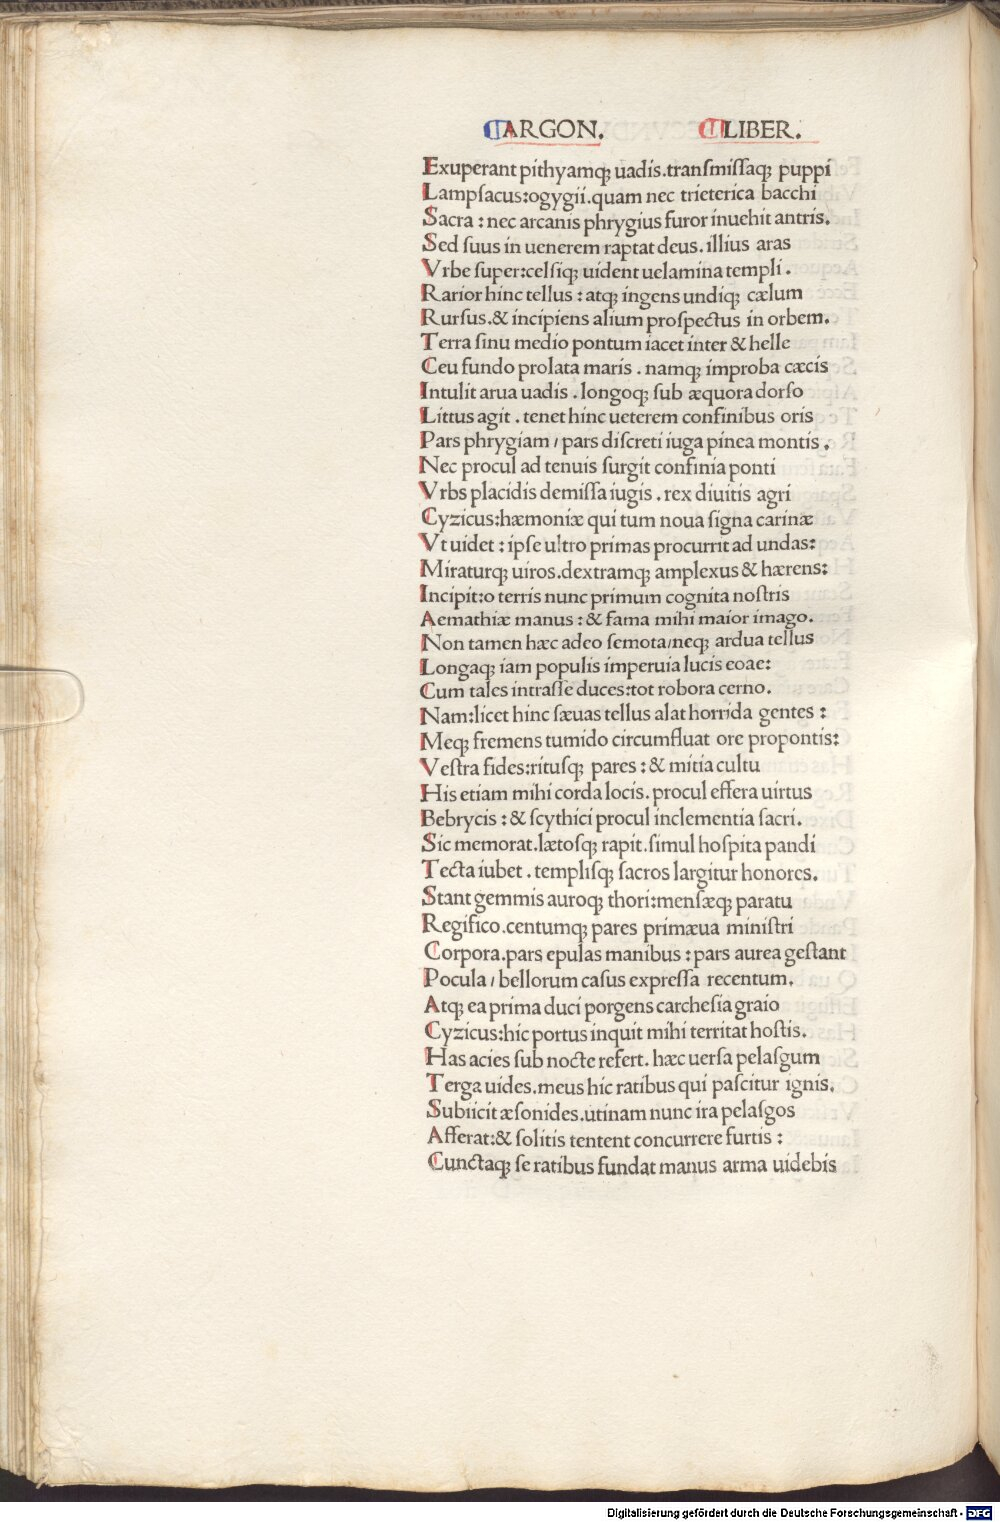 ARGON. LIBER.
Exuperant pithyamq; uadis.transmissaq; puppi
Lampsacus:ogygii.quam nec trieterica bacchi
Sacra : nec arcanis phrygius furor inuehit antris.
Sed suus in uenerem raptat deus. illius aras
Vrbe super:celsiq; uident uelamina templi.
Rarior hinc tellus : atq; ingens undiq; cælum
Rursus.& incipiens alium prospectus in orbem.
Terra sinu medio pontum iacet inter & helle
Ceu fundo prolata maris . namq; improba cæcis
Intulit arua uadis . longoq; sub æquora dorso
Littus agit . tenet hinc ueterem confinibus oris
Pars phrygiam / pars discreti iuga pinea montis .
Nec procul ad tenuis surgit confinia ponti
Vrbs placidis demissa iugis . rex diuitis agri
Cyzicus:hæmoniæ qui tum noua signa carinæ
Vt uidet : ipse ultro primas procurrit ad undas:
Miraturq; uiros.dextramq; amplexus & hærens:
Incipit:o terris nunc primum cognita nostris
Aemathiæ manus : & fama mihi maior imago.
Non tamen hæc adeo semota/neq; ardua tellus
Longaq; iam populis imperuia lucis eoae:
Cum tales intrasse duces:tot robora cerno.
Nam:licet hinc sæuas tellus alat horrida gentes :
Meq; fremens tumido circumfluat ore propontis:
Vestra fides:ritusq; pares : & mitia cultu
His etiam mihi corda locis. procul effera uirtus
Bebrycis : & scythici procul inclementia sacri.
Sic memorat.lætosq; rapit.simul hospita pandi
Tecta iubet . templisq; sacros largitur honores.
Stant gemmis auroq; thori:mensæq; paratu
Regifico.centumq; pares primæua ministri
Corpora.pars epulas manibus : pars aurea gestant
Pocula / bellorum casus expressa recentum.
Atq; ea prima duci porgens carchesia graio
Cyzicus:hic portus inquit mihi territat hostis.
Has acies sub nocte refert. hæc uersa pelasgum
Terga uides.meus hic ratibus qui pascitur ignis.
Subiicit æsonides.utinam nunc ira pelasgos
Afferat:& solitis tentent concurrere furtis :
Cunctaq; se ratibus fundat manus arma uidebis
Digitalisierung gefördert durch die Deutsche Forschungsgemeinschaft - DFG